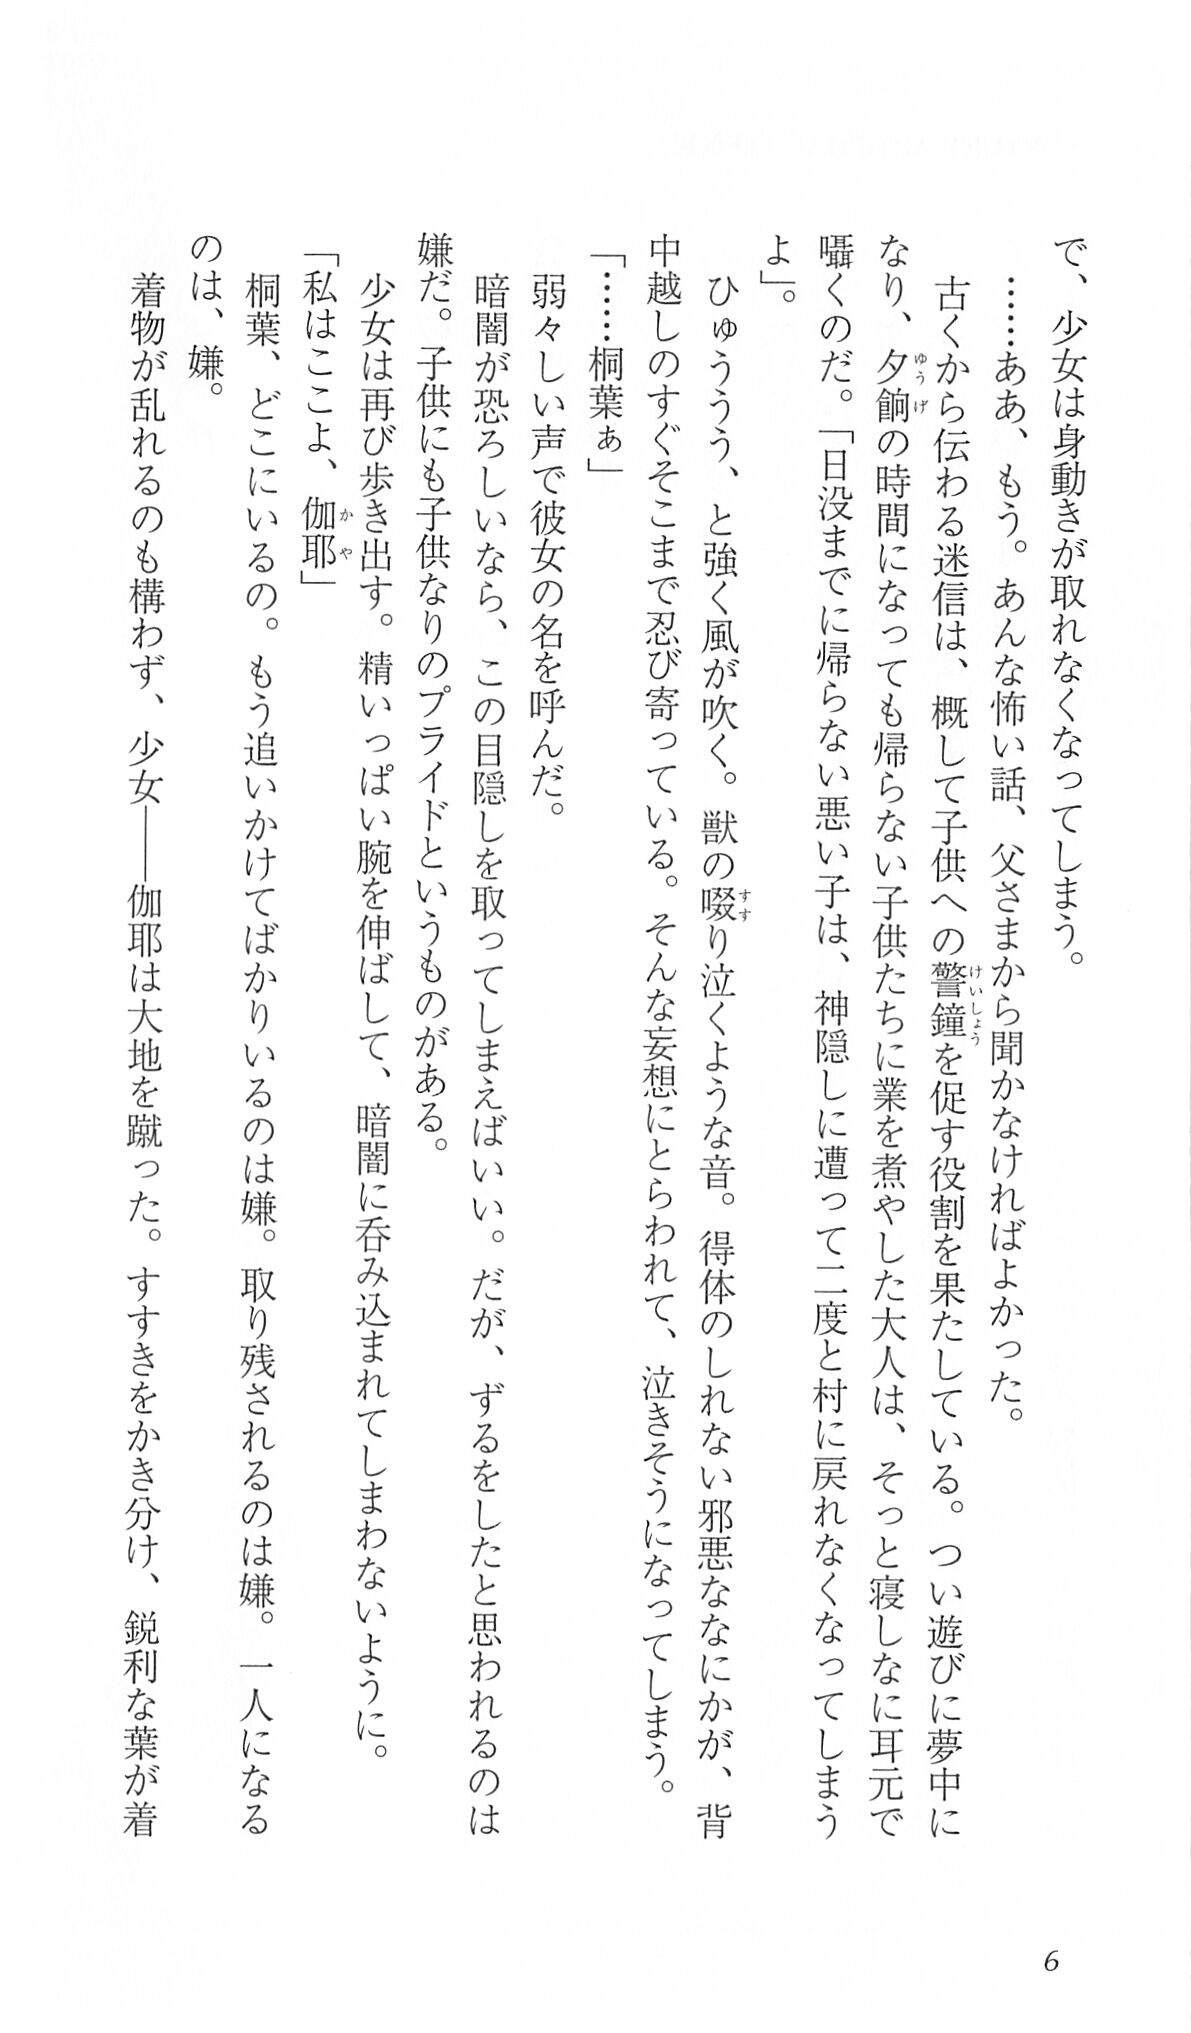 で、少女は身動きが取れなくなってしまう。
……ああ、もう。あんな怖い話、父さまから聞かなければよかった。
古くから伝わる迷信は、概して子供への警鐘を促す役割を果たしている。つい遊びに夢中に
なり、夕餉の時間になっても帰らない子供たちに業を煮やした大人は、そっと寝しなに耳元で
囁くのだ。「日没までに帰らない悪い子は、神隠しに遭って二度と村に戻れなくなってしまう
よ」。
ひゅううう、と強く風が吹く。獣の啜り泣くような音。得体のしれない邪悪ななにかが、背
中越しのすぐそこまで忍び寄っている。そんな妄想にとらわれて、泣きそうになってしまう。
「……桐葉ぁ」
弱々しい声で彼女の名を呼んだ。
暗闇が恐ろしいなら、この目隠しを取ってしまえばいい。だが、ずるをしたと思われるのは
嫌だ。子供にも子供なりのプライドというものがある。
少女は再び歩き出す。精いっぱい腕を伸ばして、暗闇に呑み込まれてしまわないように。
「私はここよ、伽耶」
桐葉、どこにいるの。もう追いかけてばかりいるのは嫌。取り残されるのは嫌。一人になる
のは、嫌。
着物が乱れるのも構わず、少女――伽耶は大地を蹴った。すすきをかき分け、鋭利な葉が着
6